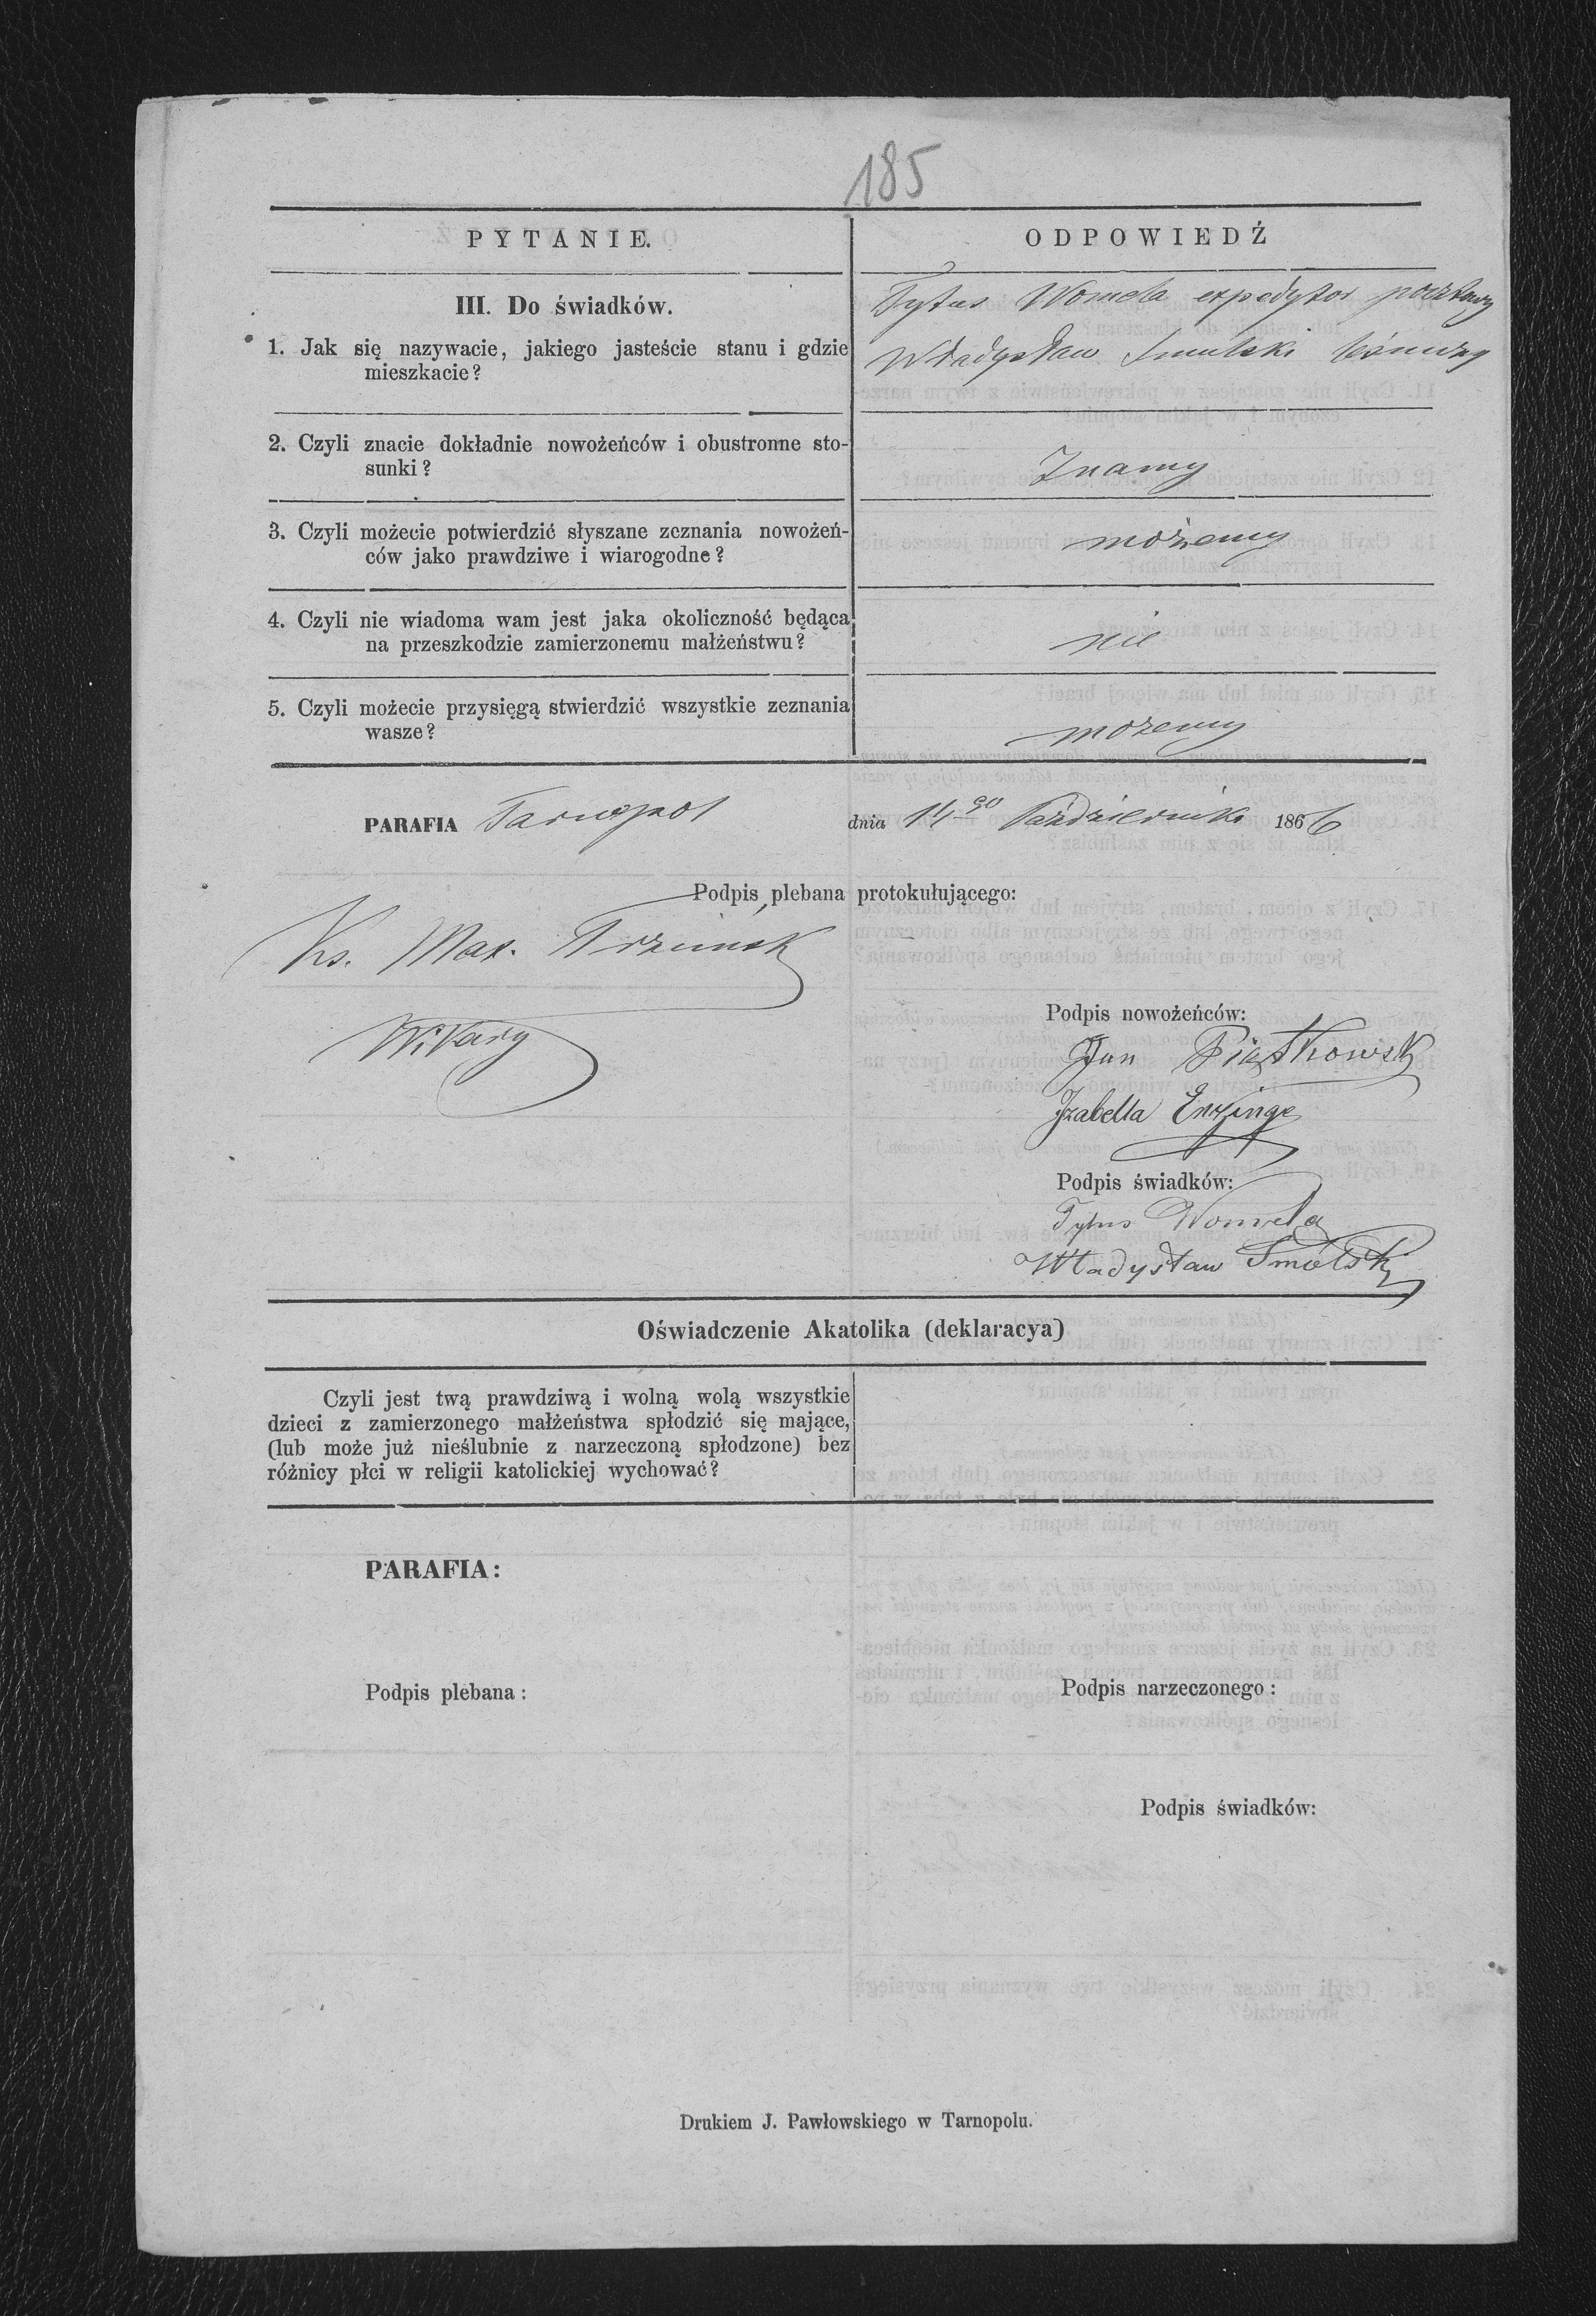 185
PYTANIE.
ODPOWIEDŹ
III. Do świadków.
1. Jak się nazywacie, jakiego jasteście stanu i gdzie
mieszkacie?
Tytus Womela expedytor pocztowy
Władysław Smulski leśniczy
2. Czyli znacie dokładnie nowożeńców i obustronne sto-
sunki?
Znamy
3. Czyli możecie potwierdzić słyszane zcznania nowożeń-
ców jako prawdziwe i wiarogodne?
możemy
4. Czyli nie wiadoma wam jest jaka okoliczność będąca
na przeszkodzie zamierzonemu małżeństwu?
nie
5. Czyli możecie przysięgą stwierdzić wszystkie zeznania
wasze?
możemy
PARAFIA Tarnopol dnia 14go Październik 1866
Podpis plebana protokułującego:
Ks. Max.
Wikary
Podpis nowożeńców:
Jan Piątkowski
Izabella
Podpis świadków:
Tytus Womela
Władysław Smólski
Oświadczenie Akatolika (deklaracya)
Czyli jest twą prawdziwą i wolną wolą wszystkie
dzieci z zamierzonego małżeństwa spłodzić się mające,
(lub może już nieślubnie z narzeczoną spłodzone) bez
różnicy płci w religii katolickiej wychować?
PARAFIA:
Podpis plebana:
Podpis narzeczonego:
Podpis świadków:
Drukiem J. Pawłowskiego w Tarnopolu.